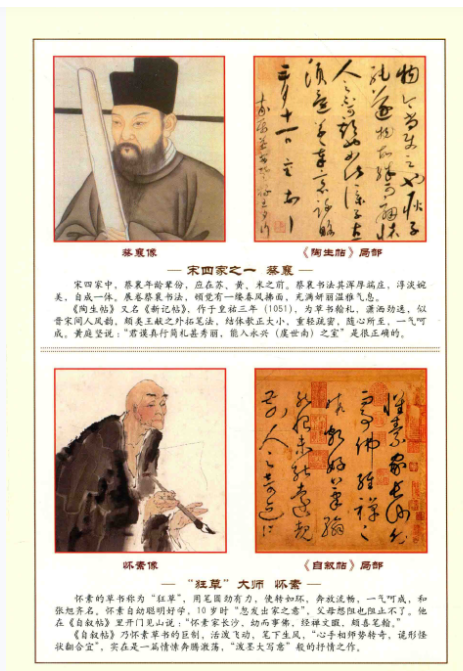 蔡襄像
《陶生帖》局部
宋四家之一 蔡襄
宋四家中，蔡襄年龄辈份，应在苏、黄、米之前。蔡襄书法其浑厚端庄，淳淡婉
美，自成一体，展卷蔡襄书法，顿觉有一缕春风拂面，充满妍丽温雅气息。
《陶生帖》又名《新记帖》，作于皇祐三年（1051），为草书翰札，潇洒劲逸，似
晋宋间人风韵，颇类王献之外拓笔法，结体欹正大小，重轻疏密，随心所至，一气呵
成。黄庭坚说：“君谟真行简札甚秀丽，能入永兴（虞世南）之室”是很正确的。
怀素像
《自叙帖》局部
怀素家长沙幼
而事佛经禅之
暇颇好笔翰
然恨未能远覩
前人之奇迹所
“狂草”大师 怀素
怀素的草书称为“狂草”，用笔圆劲有力，使转如环，奔放流畅，一气呵成，和
张旭齐名。怀素自幼聪明好学，10岁时“忽发出家之意”，父母想阻也阻止不了。他
在《自叙帖》里开门见山说：“怀素家长沙，幼而事佛，经禅之暇，颇喜笔翰。”
《自叙帖》乃怀素草书的巨制，活泼飞动，笔下生风，“心手相师势转奇，诡形怪
状翻合宜”，实在是一篇情愫奔腾激荡，“泼墨大写意”般的抒情之作。